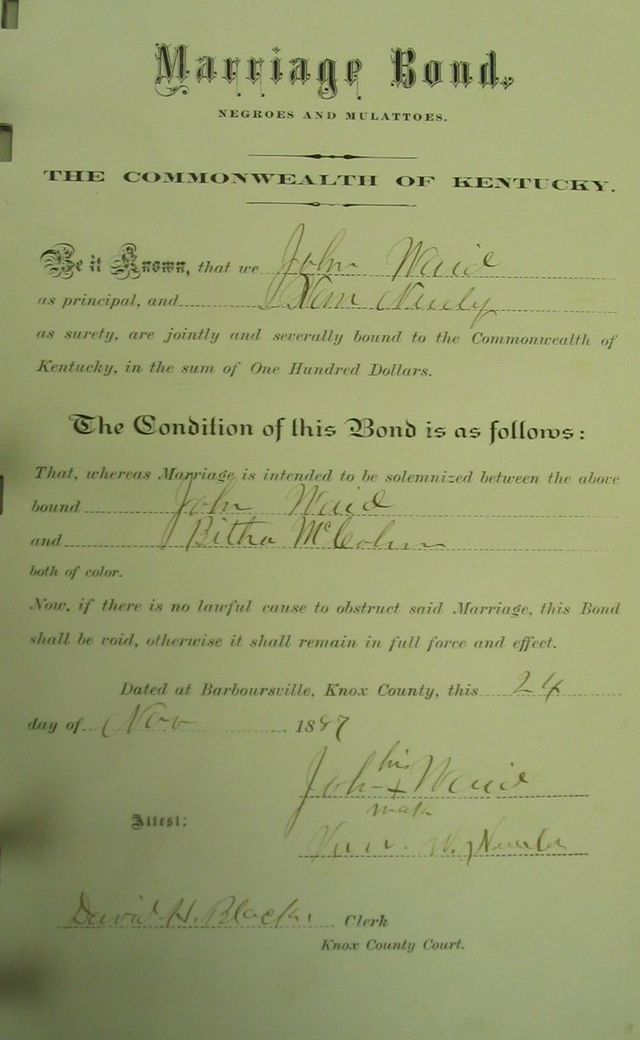 Marriage Bond.
NEGROES AND MULATTOES.
THE COMMONWEALTH OF KENTUCKY.
Be it Known, that we John Waid
as principal, and
as surety, are jointly and severally bound to the Commonwealth of
Kentucky, in the sum of One Hundred Dollars.
The Condition of this Bond is as follows:
That, whereas Marriage is intended to be solemnized between the above
bound John Waid
and Bitha
both of color.
Now, if there is no lawful cause to obstruct said Marriage, this Bond
shall be void, otherwise it shall remain in full force and effect.
Dated at Barboursville, Knox County, this 24
day of Nov 1887
his
John + Waid
mark
Attest:
David H. Black Clerk
Knox County Court.